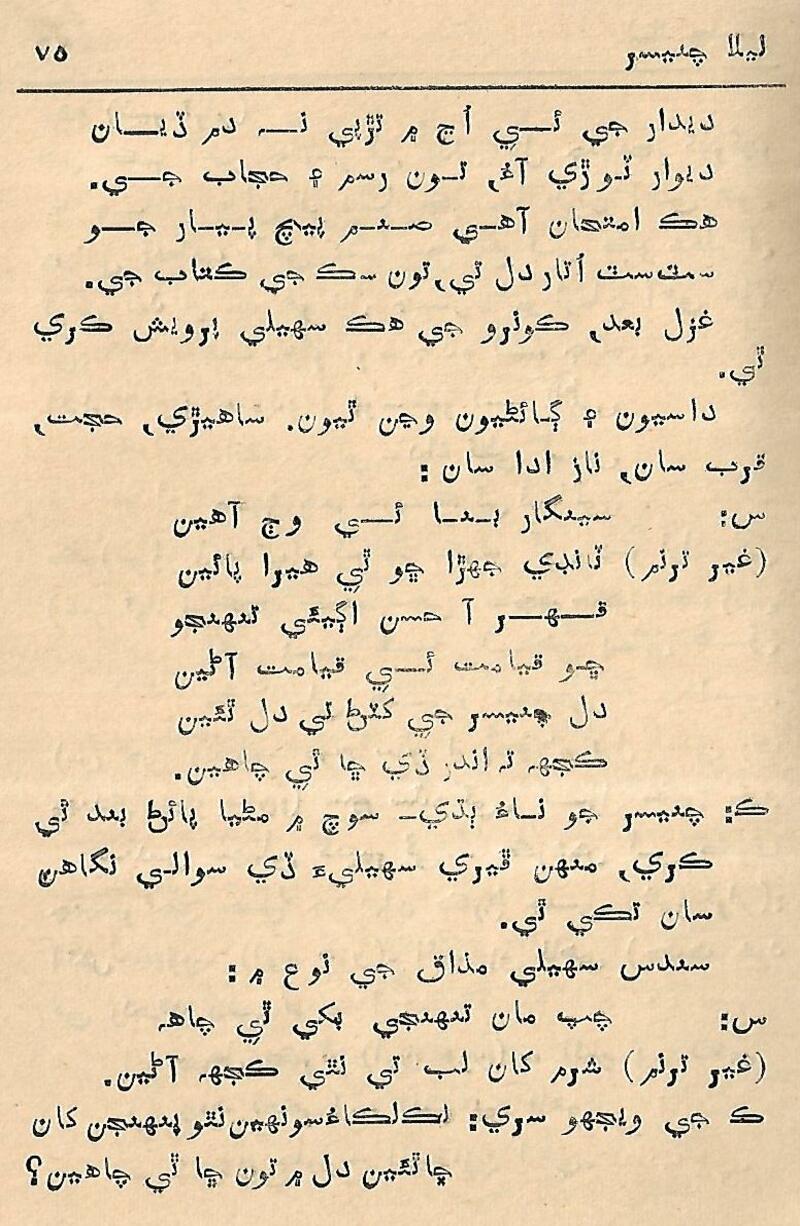 ليلا چنيسر ٧٥
ديدار جي ئي اڄ ۾ تڙپي نہ دم ڏيان
ديوار ٽوڙي آءُ، تون رسم ۽ حجاب جي.
هڪ امتحان آهي صنم پيچ پيار جو
ست ست اُتار دل تي، تون سڪ جي ڪتاب جي.
غزل بعد، ڪونرو جي هڪ سهيلي پرويش ڪري
ٿي.
داسيون ۽ ڳائڻيون وڃن ٿيون. ساهيڙي، حجت،
قرب سان، ناز ادا سان :
س: سينگار بنا ئي وڄ آهين
(غير ترنم) ٽانڊي جهڙا ڇو ٿي هيرا پائين
قهر آ حسن اڳيئي تنهنجو
ڇو قيامت ئي قيامت آڻين
دل چنيسر جي کٽڻ تي دل ٿئين
ڪجهہ تہ اندر ڏي ڇا ٿي چاهين.
ڪ: چنيسر جو ناءُ ٻڌي- سوچ ۾ مڻيا پائڻ بعد ٿي
ڪري، منهن ڦيري سهيليءَ ڏي سوالي نگاهن
سان تڪي ٿي.
سندس سهيلي مذاق جي نوع ۾ :
س: چپ مان تنهنجي پکي ٿي چاهہ
(غير ترنم) شرم کان لب تي نٿي ڪجهہ آڻين.
ڪ جي ويجهو سري: لڪ لڪاءُ سونهين نٿو پنهنجن کان
ڇا ٿئين دل ۾ تون ڇا ٿي چاهين؟